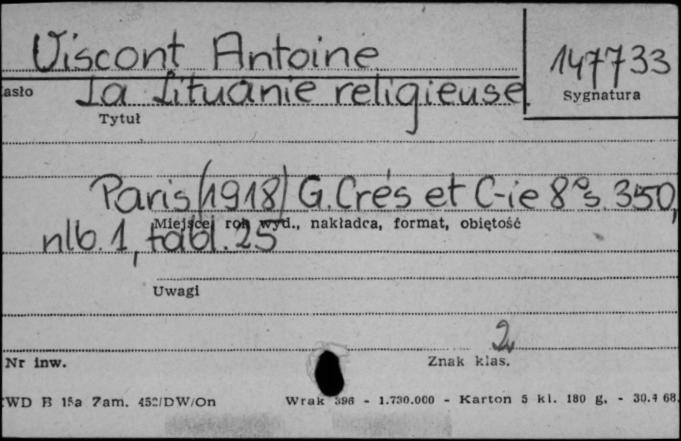 Viscont Antoine
147733
asło
La Lituanie religieuse
Sygnatura
Tytuł
Paris (1918) G. Crés et C-ie 8° s. 350,
Miejsce, rok wyd., nakładca, format, objętość
nlb. 1, tabl. 25
Uwagi
2
Nr inw.
Znak klas.
WD B 15a Zam. 452/DW/On
Wrak 396 - 1.730.000 - Karton 5 kl. 180 g. - 30.4 68.